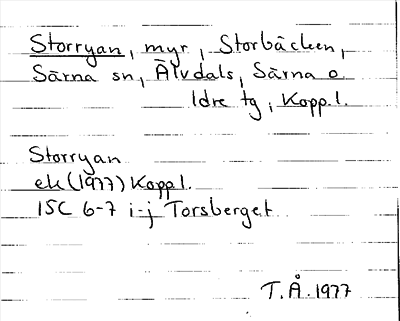 Storryan, myr, Storbäcken,
Särna sn, Älvdals, Särna o
Idre tg, Kopp. l.
Storryan
ek (1977) Kopp l.
15C 6-7 i-j Torsberget
T.Å. 1977